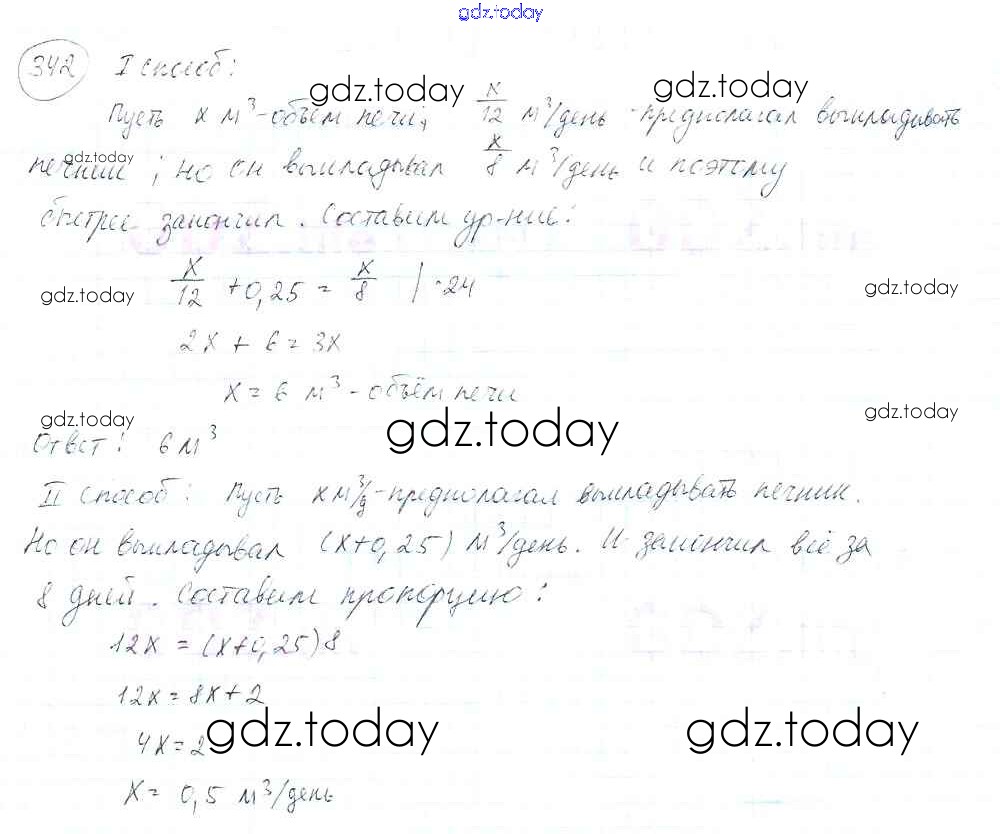 gdz.today
342 I способ:
gdz.today gdz.today
Пусть x м³-объём печи, x/12 м³/день -предполагал выкладывать
gdz.today
печник; но он выкладывал x/8 м³/день и поэтому
быстрее закончил. Составим ур-ние:
x/12 + 0,25 = x/8 | ·24
gdz.today gdz.today
2x + 6 = 3x
x = 6 м³ - объём печи
gdz.today gdz.today gdz.today
Ответ: 6 м³
II способ: Пусть x м³/д -предполагал выкладывать печник.
Но он выкладывал (x+0,25) м³/день. И закончил всё за
8 дней. Составим пропорцию:
12x = (x+0,25)8
12x = 8x + 2
gdz.today gdz.today
4x = 2
x = 0,5 м³/день